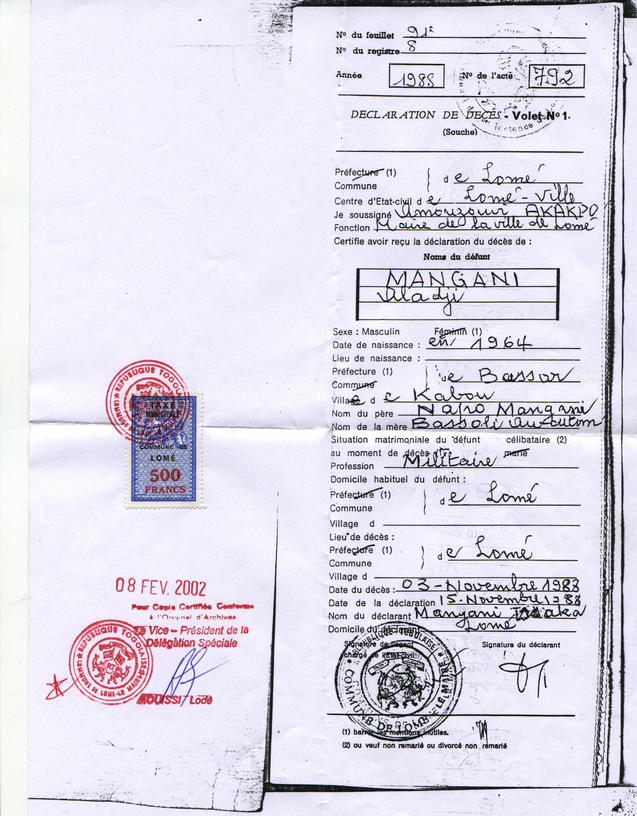 N° du feuillet 91²
N° du registre 8
Année 1988 N° de l'acte 792
DECLARATION DE DECÈS - Volet N° 1.
(Souche)
Préfecture (1)
Commune } de Lomé
Centre d'Etat-civil de Lomé-Ville
Je soussigné Amouzouvi AKAKPO
Fonction Maire de la ville de Lomé
Certifie avoir reçu la déclaration du décès de :
Noms du défunt
MANGANI
Aladji
Sexe : Masculin Féminin (1)
Date de naissance : en 1964
Lieu de naissance :
Préfecture (1)
Commune } de Bassar
Village de Kabou
Nom du père Napo Mangani
Nom de la mère Bassoli
Situation matrimoniale du défunt célibataire (2)
au moment de décès marié
Profession Militaire
Domicile habituel du défunt :
Préfecture (1)
Commune } de Lomé
Village d
Lieu de décès :
Préfecture (1)
Commune } de Lomé
Village d
Date du décès : 03-Novembre 1988
Date de la déclaration 15-Novembre 1988
Nom du déclarant Mangani
Domicile du déclarant Lomé
Signature de l'agent
chargé de l'Etat-Civil
Signature du déclarant
COMMUNE DE LOME - LE MAIRE
(1) barrer les mentions inutiles.
(2) ou veuf non remarié ou divorcé non remarié
REPUBLIQUE TOGOLAISE
TAXE
MUNICIPALE
COMMUNE DE
LOMÉ
500
FRANCS
08 FEV. 2002
Pour Copie Certifiée Conforme
à l'Original d'Archives
Le Vice - Président de la
Délégation Spéciale
REPUBLIQUE TOGOLAISE
COMMUNE DE LOME - LE MAIRE
AOUISSI Lodé